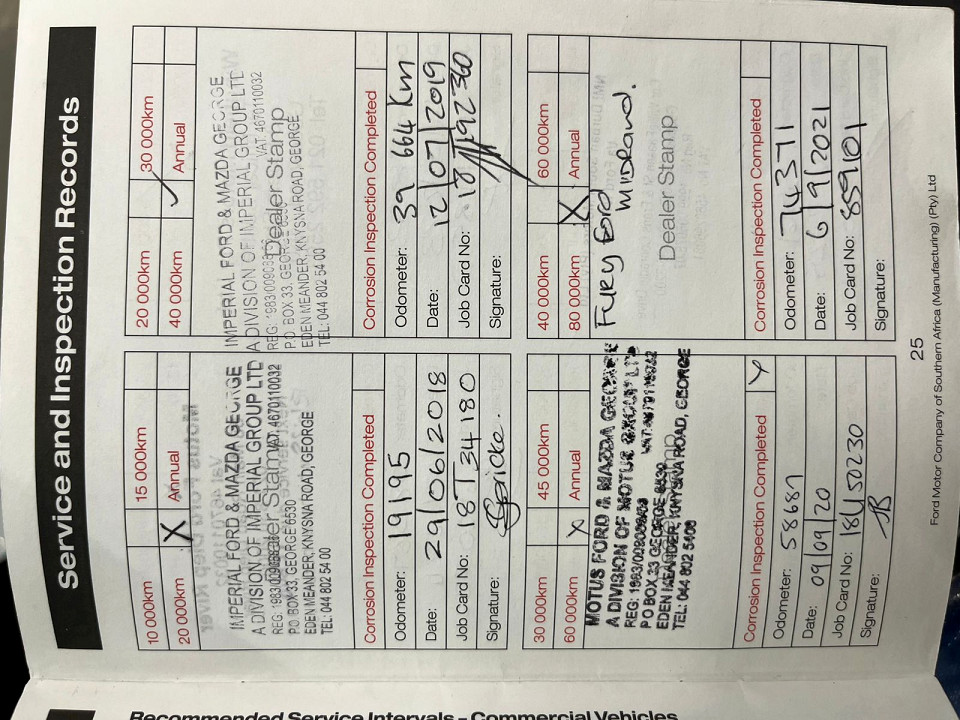 Service and Inspection Records
10 000km 15 000km
20 000km X Annual
IMPERIAL FORD & MAZDA GEORGE
A DIVISION OF IMPERIAL GROUP LTD
VAT. 4670110032
Dealer Stamp
P.O. BOX 33, GEORGE 6530
EDEN MEANDER, KNYSNA ROAD, GEORGE
TEL: 044 802 54 00
Corrosion Inspection Completed
Odometer: 19195
Date: 29/06/2018
Job Card No: 18T34180
Signature:
20 000km 30 000km
40 000km ✓ Annual
IMPERIAL FORD & MAZDA GEORGE
A DIVISION OF IMPERIAL GROUP LTD
VAT. 4670110032
Dealer Stamp
P.O. BOX 33, GEORGE
EDEN MEANDER, KNYSNA ROAD, GEORGE
TEL: 044 802 54 00
Corrosion Inspection Completed
Odometer: 39 664 Km
Date: 12/07/2019
Job Card No:
Signature:
30 000km 45 000km
60 000km X Annual
MOTUS FORD & MAZDA GEORGE
A DIVISION OF MOTUS GROUP LTD
P O BOX 33 GEORGE 6530
EDEN MEANDER, KNYSNA ROAD, GEORGE
TEL: 044 802 5400
Corrosion Inspection Completed Y
Odometer: 58689
Date: 09/09/20
Job Card No: 18U50230
Signature:
40 000km 60 000km
80 000km X Annual
Fury Ford
Midrand.
Dealer Stamp
Corrosion Inspection Completed
Odometer: 74371
Date: 6/9/2021
Job Card No: 859101
Signature:
25
Ford Motor Company of Southern Africa (Manufacturing) (Pty) Ltd
Recommended Service Intervals – Commercial Vehicles